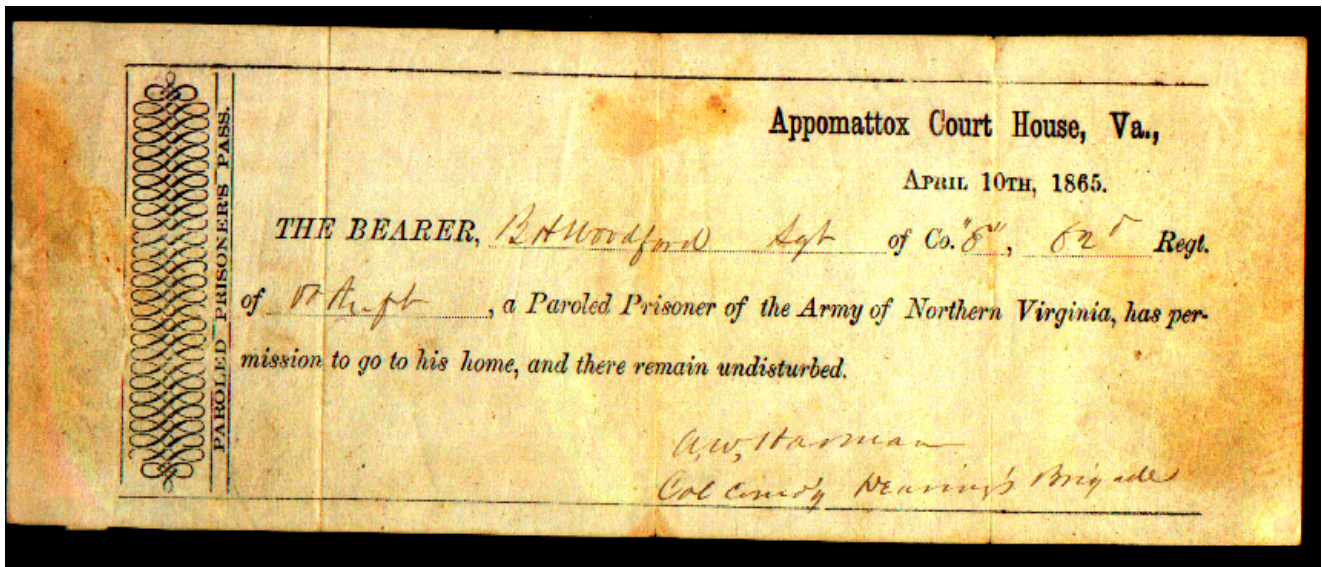 PAROLED PRISONER'S PASS.
Appomattox Court House, Va.,
APRIL 10TH, 1865.
THE BEARER, B H Woodford Sgt of Co. " ", 62d Regt.
of , a Paroled Prisoner of the Army of Northern Virginia, has per-
mission to go to his home, and there remain undisturbed.
A. W. Harman
Col Comdg Dearing's Brigade